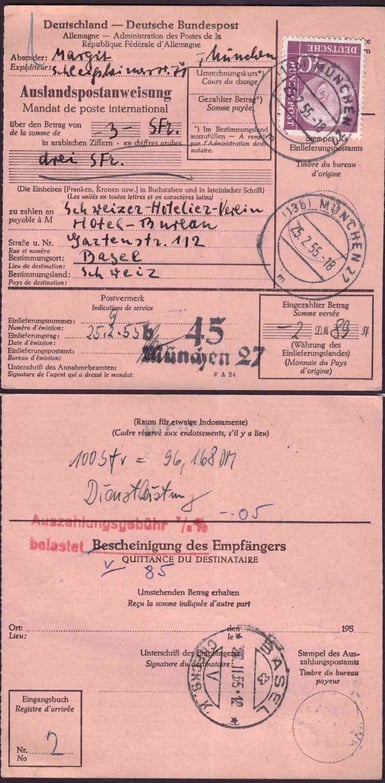 Deutschland — Deutsche Bundespost
Allemagne — Administration des Postes de la
République Fédérale d'Allemagne
Absender: Margit
Expéditeur:
München
Auslandspostanweisung
Mandat de poste international
Umrechnungskurs*)
Cours du change
Gezahlter Betrag*)
Somme payée
über den Betrag von
de la somme de
3,- SFr.
in arabischen Ziffern - en chiffres arabes
drei SFr.
*) Im Bestimmungsland
auszufüllen — A remplir
par l'Administration desti-
nataire.
DEUTSCHE
BUNDESPOST
MÜNCHEN
Stempel des
Einlieferungspostamts
Timbre du bureau
d'origine
(Die Einheiten [Franken, Kronen usw.] in Buchstaben und in lateinischer Schrift)
(Les unités en toutes lettres et en caractères latins)
zu zahlen an
payable à M
Schweizer-Hotelier-Verein
Hotel-Bureau
Straße u. Nr.
Rue et numéro
Gartenstr. 112
Bestimmungsort:
Lieu de destination:
Basel
Bestimmungsland:
Pays de destination:
Schweiz
(13b) MÜNCHEN 27
25.2.55.-18
m
Postvermerk
Indications de service
Einlieferungsnummer:
Numéro d'émission:
9
Einlieferungstag:
Date d'émission:
25.2.55
b 45
Einlieferungspostamt:
Bureau d'émission:
München 27
Unterschrift des Annahmebeamten:
Signature de l'agent qui a dressé le mandat:
Eingezahlter Betrag
Somme versée
-2 DM 89 Pf
(Währung des
Einlieferungslandes)
(Monnaie du Pays
d'origine)
(Raum für etwaige Indossamente)
(Cadre réservé aux endossements, s'il y a lieu)
100 Sfr = 96,168 DM
Dienstleistung
-.05
Auszahlungsgebühr
belastet
Bescheinigung des Empfängers
QUITTANCE DU DESTINATAIRE
85
Umstehenden Betrag erhalten
Reçu la somme indiquée d'autre part
Ort:
Lieu:
den
le
195
Unterschrift des Empfängers
Signature du destinataire:
Stempel des Aus-
zahlungspostamts
Timbre du bureau
payeur
BASEL
V
Eingangsbuch
Registre d'arrivée
2
Nr.
No